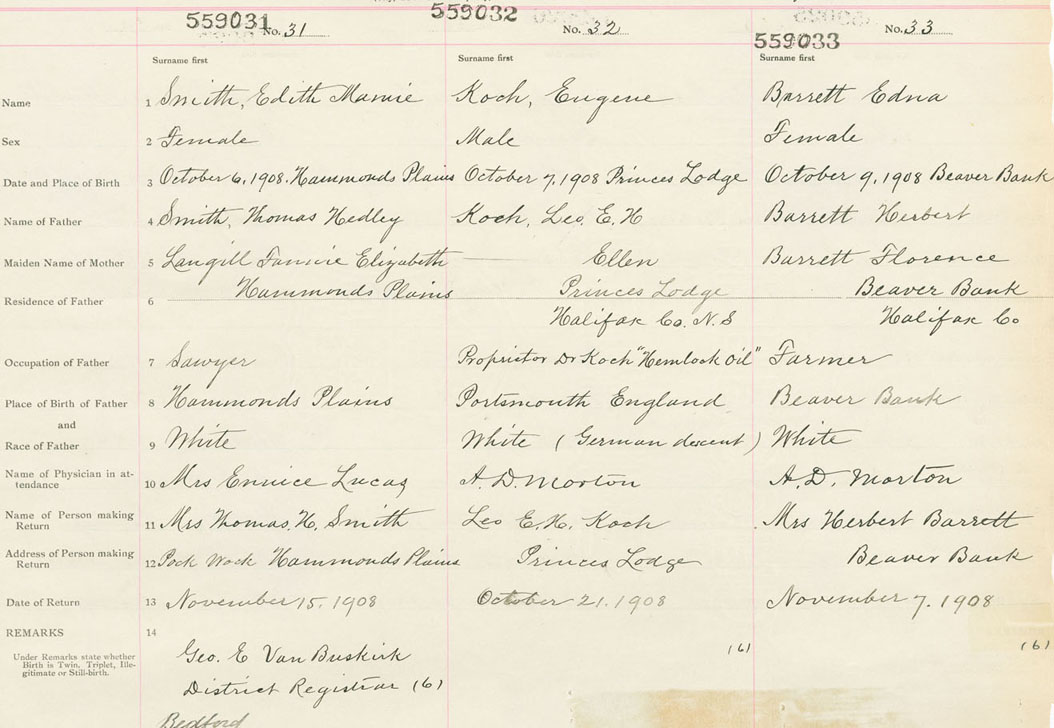 559031 No. 31 559032 No. 32 559033 No. 33
Surname first Surname first Surname first
Name 1 Smith, Edith Mamie Koch, Eugene Barrett Edna
Sex 2 Female Male Female
Date and Place of Birth 3 October 6, 1908. Hammonds Plains October 7, 1908 Princes Lodge October 9, 1908 Beaver Bank
Name of Father 4 Smith, Thomas Hedley Koch, Leo. E. H Barrett Herbert
Maiden Name of Mother 5 Langill Fannie Elizabeth Ellen Barrett Florence
Residence of Father 6 Hammonds Plains Princes Lodge Beaver Bank
Halifax Co. N. S Halifax Co
Occupation of Father 7 Sawyer Proprietor Dr Koch "Hemlock Oil" Farmer
Place of Birth of Father 8 Hammonds Plains Portsmouth England Beaver Bank
and
Race of Father 9 White White (German descent) White
Name of Physician in at-
tendance 10 Mrs Eunice Lucas A. D. Morton A. D. Morton
Name of Person making
Return 11 Mrs Thomas. H. Smith Leo E. H. Koch Mrs Herbert Barrett
Address of Person making
Return 12 Pock Wock Hammonds Plains Princes Lodge Beaver Bank
Date of Return 13 November 15, 1908 October 21, 1908 November 7, 1908
REMARKS 14
Under Remarks state whether
Birth is Twin, Triplet, Ille-
gitimate or Still-birth.
Geo. E Van Buskirk (6) (6)
District Registrar (6)
Bedford